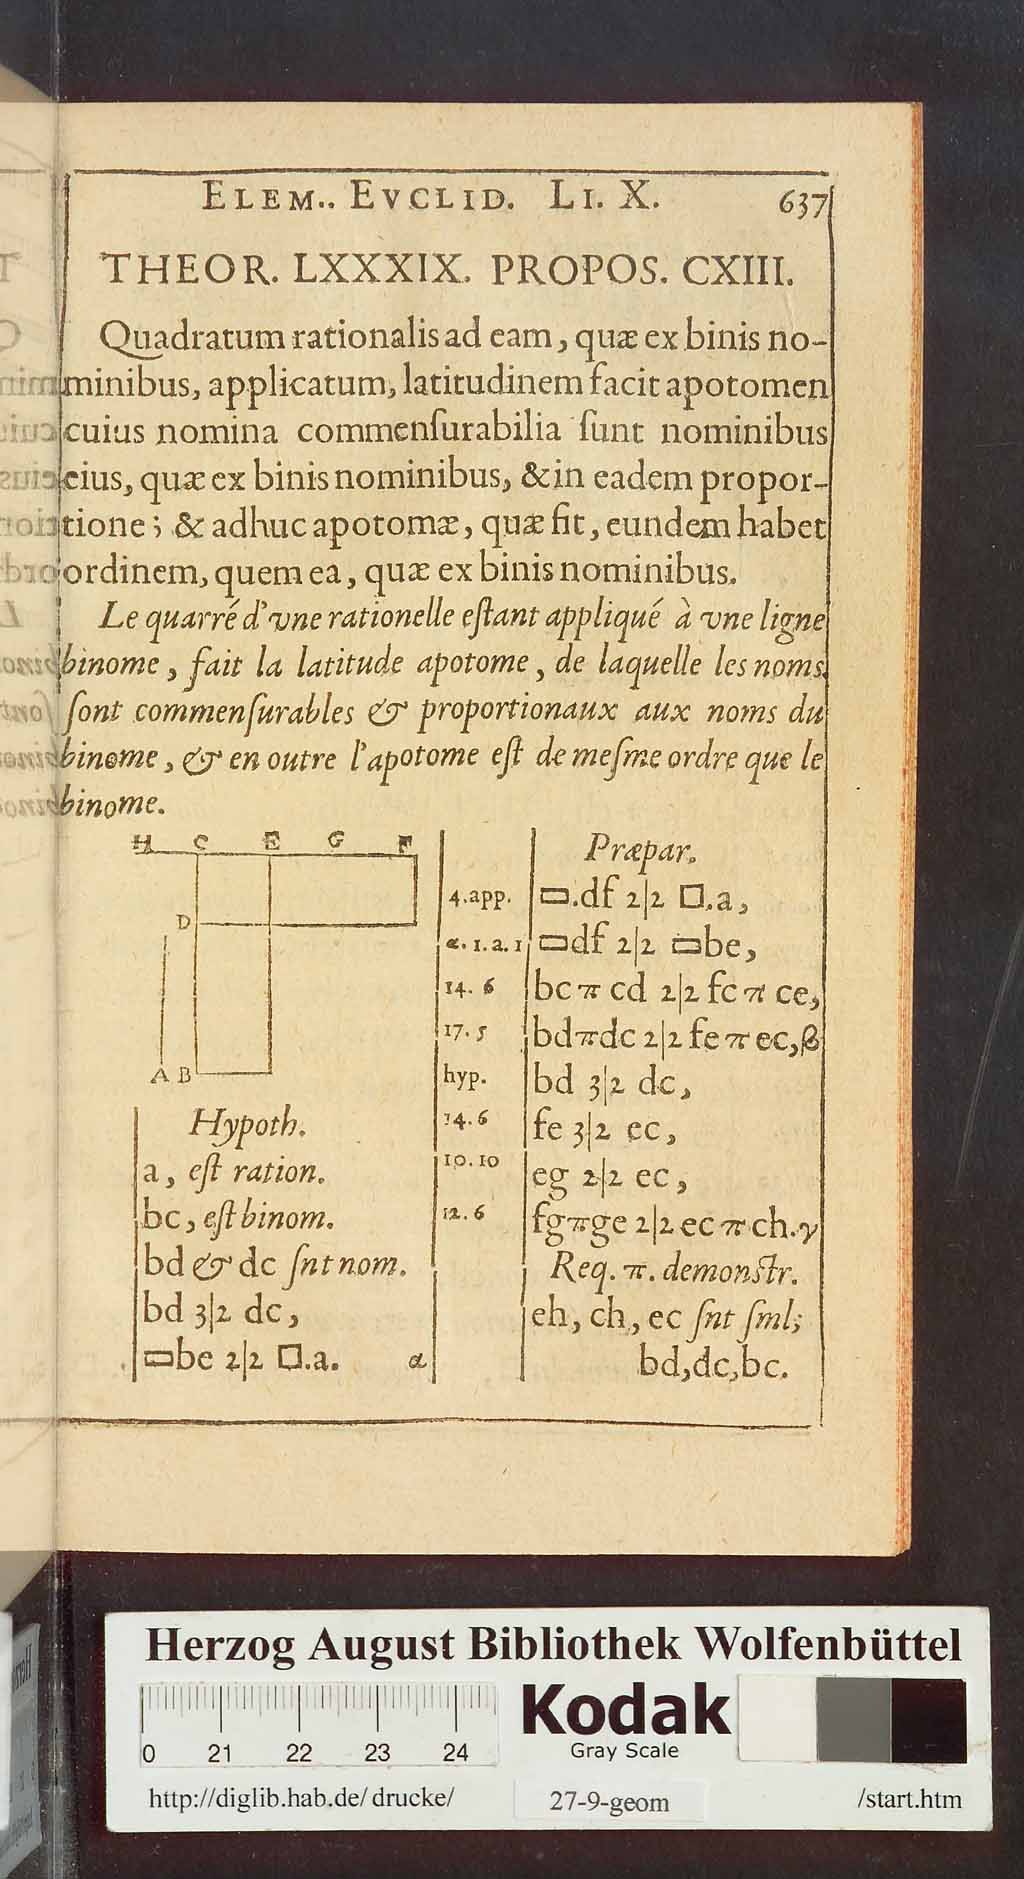 ELEM.. EVCLID. LI. X. 637
THEOR. LXXXIX. PROPOS. CXIII.
Quadratum rationalis ad eam, quæ ex binis no-
minibus, applicatum, latitudinem facit apotomen
cuius nomina commenſurabilia ſunt nominibus
eius, quæ ex binis nominibus, & in eadem propor-
tione; & adhuc apotomæ, quæ fit, eundem habet
ordinem, quem ea, quæ ex binis nominibus.
Le quarré d'vne rationelle eſtant appliqué à vne ligne
binome, fait la latitude apotome, de laquelle les noms
ſont commenſurables & proportionaux aux noms du
binome, & en outre l'apotome eſt de meſme ordre que le
binome.
H C E G F
D
A B
Hypoth.
a, eſt ration.
bc, eſt binom.
bd & dc ſnt nom.
bd 3|2 dc,
▭be 2|2 □.a. α
Præpar.
4.app. ▭.df 2|2 □.a,
α.1.a.1 ▭df 2|2 ▭be,
14.6 bc π cd 2|2 fc π ce,
17.5 bd π dc 2|2 fe π ec, β
hyp. bd 3|2 dc,
14.6 fe 3|2 ec,
10.10 eg 2|2 ec,
12.6 fg π ge 2|2 ec π ch. γ
Req. π. demonſtr.
eh, ch, ec ſnt ſml;
bd, dc, bc.
Herzog August Bibliothek Wolfenbüttel
0 21 22 23 24
Kodak
Gray Scale
http://diglib.hab.de/drucke/ 27-9-geom /start.htm